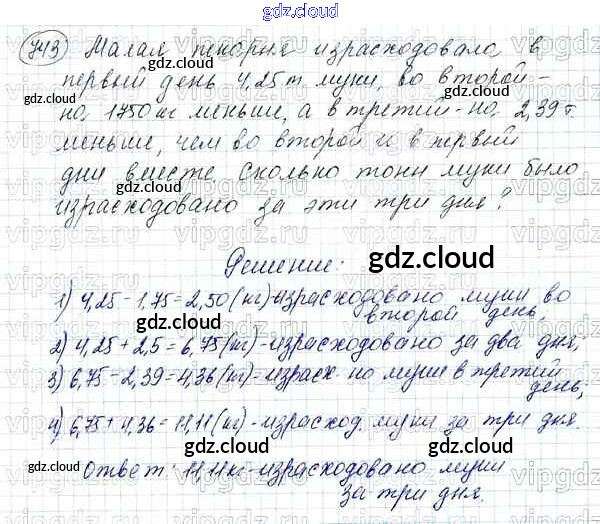 gdz.cloud
743 Малая пекарня израсходовала в
первый день 4,25 т муки, во второй –
на 1750 кг меньше, а в третий – на 2,39 т.
меньше, чем во второй и в первый
дни вместе. Сколько тонн муки было
израсходовано за эти три дня?
Решение:
gdz.cloud
1) 4,25 - 1,75 = 2,50 (кг) - израсходовано муки во
второй день;
2) 4,25 + 2,5 = 6,75 (кг) - израсходовано за два дня;
3) 6,75 - 2,39 = 4,36 (кг) - израсх-но муки в третий
день;
4) 6,75 + 4,36 = 11,11 (кг) - израсход. муки за три дня.
Ответ: 11,11 кг - израсходовано муки
за три дня.